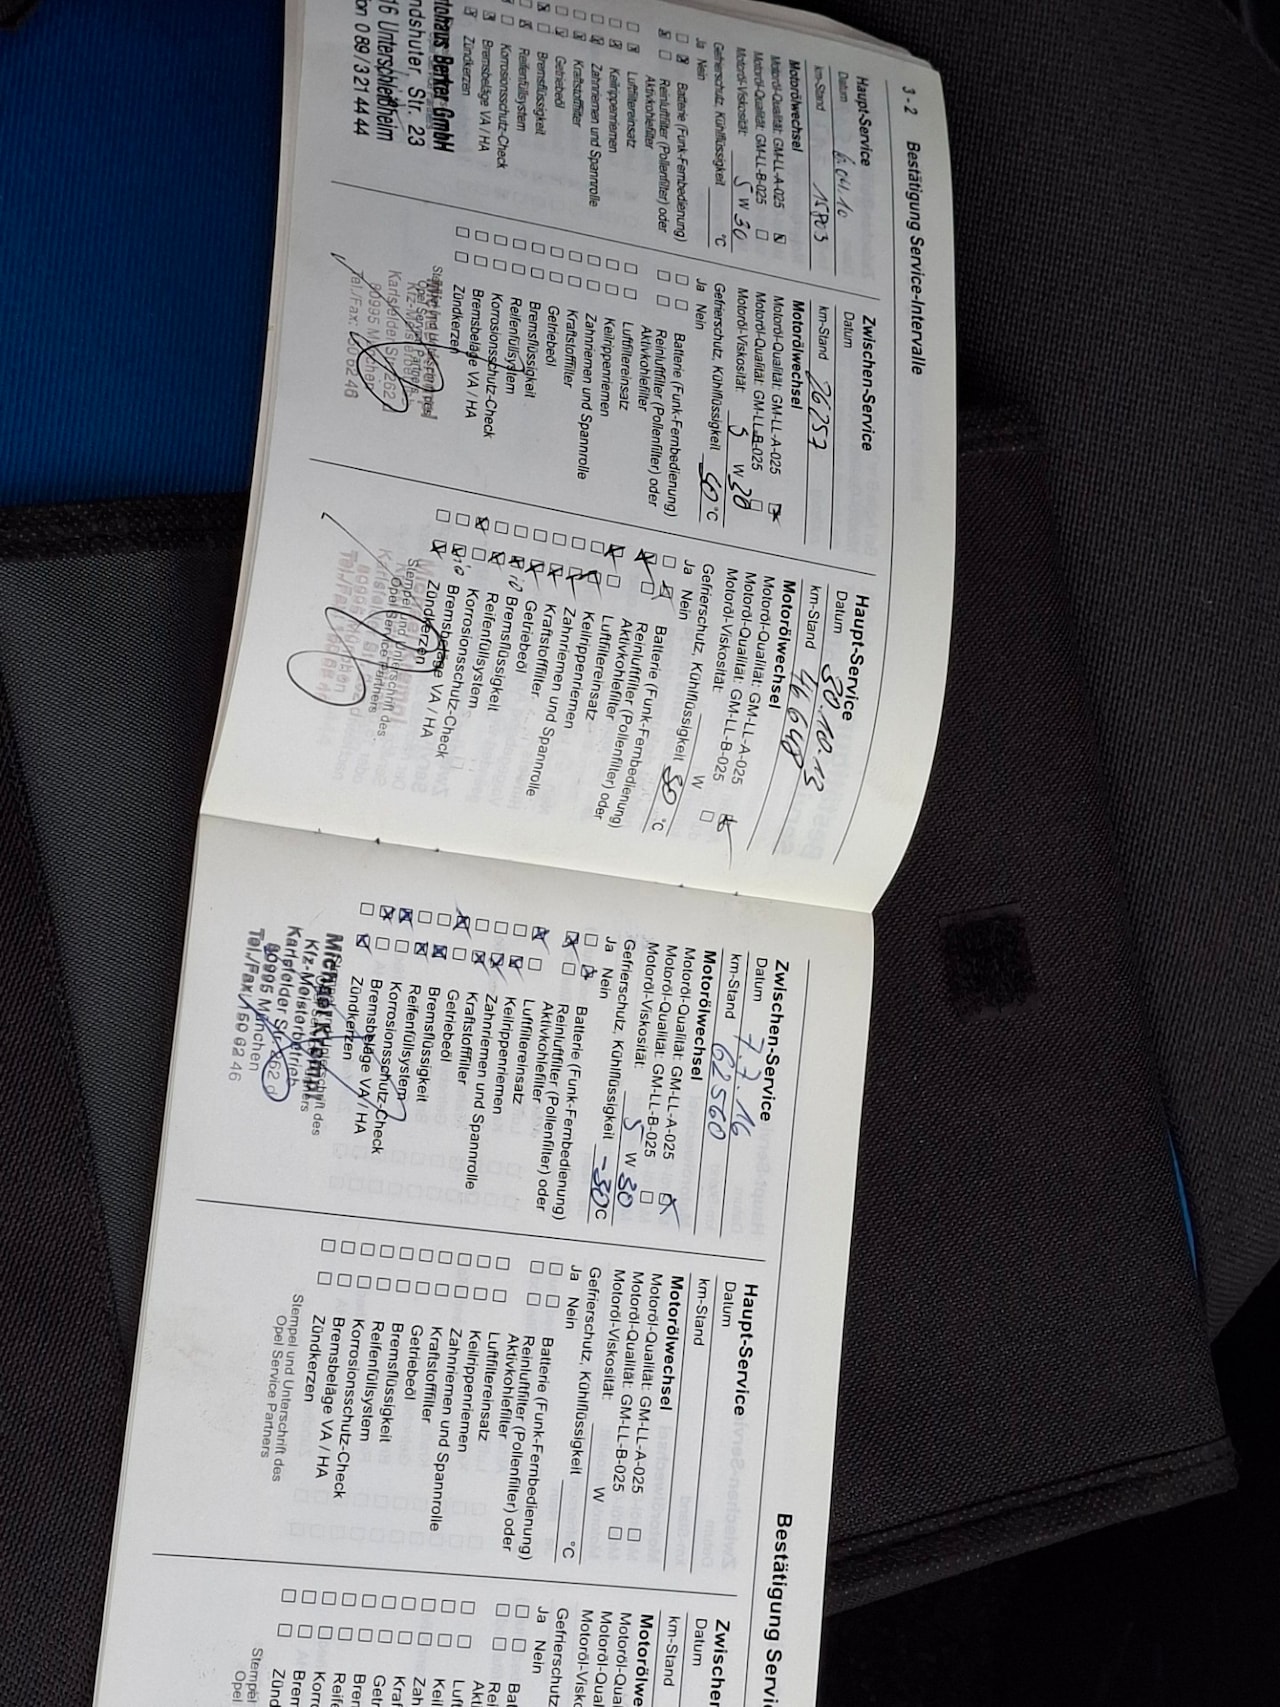 3 - 2 Bestätigung Service-Intervalle
Haupt-Service
Datum
km-Stand
Motorölwechsel
Motoröl-Qualität: GM-LL-A-025
Motoröl-Qualität: GM-LL-B-025
Motoröl-Viskosität: 5 W 30
Gefrierschutz, Kühlflüssigkeit °C
Ja Nein
Batterie (Funk-Fernbedienung)
Reinluftfilter (Pollenfilter) oder
Aktivkohlefilter
Luftfiltereinsatz
Keilrippenriemen
Zahnriemen und Spannrolle
Kraftstofffilter
Getriebeöl
Bremsflüssigkeit
Reifenfüllsystem
Korrosionsschutz-Check
Bremsbeläge VA / HA
Zündkerzen
GmbH
Str. 23
Unterschleißheim
0 89 / 321 44 44
Zwischen-Service
Datum
km-Stand 26257
Motorölwechsel
Motoröl-Qualität: GM-LL-A-025
Motoröl-Qualität: GM-LL-B-025
Motoröl-Viskosität: 5 W 30
Gefrierschutz, Kühlflüssigkeit °C
Ja Nein
Batterie (Funk-Fernbedienung)
Reinluftfilter (Pollenfilter) oder
Aktivkohlefilter
Luftfiltereinsatz
Keilrippenriemen
Zahnriemen und Spannrolle
Kraftstofffilter
Getriebeöl
Bremsflüssigkeit
Reifenfüllsystem
Korrosionsschutz-Check
Bremsbeläge VA / HA
Zündkerzen
Haupt-Service
Datum 30.10.13
km-Stand 46648
Motorölwechsel
Motoröl-Qualität: GM-LL-A-025
Motoröl-Qualität: GM-LL-B-025
Motoröl-Viskosität: W
Gefrierschutz, Kühlflüssigkeit 30 °C
Ja Nein
Batterie (Funk-Fernbedienung)
Reinluftfilter (Pollenfilter) oder
Aktivkohlefilter
Luftfiltereinsatz
Keilrippenriemen
Zahnriemen und Spannrolle
Kraftstofffilter
Getriebeöl
Bremsflüssigkeit
Reifenfüllsystem
Korrosionsschutz-Check
Bremsbeläge VA / HA
Zündkerzen
Stempel und Unterschrift des
Opel Service Partners
Bestätigung Servi
Zwischen-Service
Datum 7.7.16
km-Stand 62560
Motorölwechsel
Motoröl-Qualität: GM-LL-A-025
Motoröl-Qualität: GM-LL-B-025
Motoröl-Viskosität: 5 W 30
Gefrierschutz, Kühlflüssigkeit -30 °C
Ja Nein
Batterie (Funk-Fernbedienung)
Reinluftfilter (Pollenfilter) oder
Aktivkohlefilter
Luftfiltereinsatz
Keilrippenriemen
Zahnriemen und Spannrolle
Kraftstofffilter
Getriebeöl
Bremsflüssigkeit
Reifenfüllsystem
Korrosionsschutz-Check
Bremsbeläge VA / HA
Zündkerzen
Michael
Kfz-Meisterbetrieb
Karlsfelder Str.
80995 München
Haupt-Service
Datum
km-Stand
Motorölwechsel
Motoröl-Qualität: GM-LL-A-025
Motoröl-Qualität: GM-LL-B-025
Motoröl-Viskosität: W
Gefrierschutz, Kühlflüssigkeit °C
Ja Nein
Batterie (Funk-Fernbedienung)
Reinluftfilter (Pollenfilter) oder
Aktivkohlefilter
Luftfiltereinsatz
Keilrippenriemen
Zahnriemen und Spannrolle
Kraftstofffilter
Getriebeöl
Bremsflüssigkeit
Reifenfüllsystem
Korrosionsschutz-Check
Bremsbeläge VA / HA
Zündkerzen
Stempel und Unterschrift des
Opel Service Partners
Zwischen
Datum
km-Stand
Motorölwe
Motoröl-Qual
Motoröl-Qual
Motoröl-Visk
Gefrierschutz
Ja Nein
Bat
Rei
Akti
Luft
Keil
Zah
Kraf
Getr
Brem
Reife
Korro
Brem
Zünd
Stempel
Opel